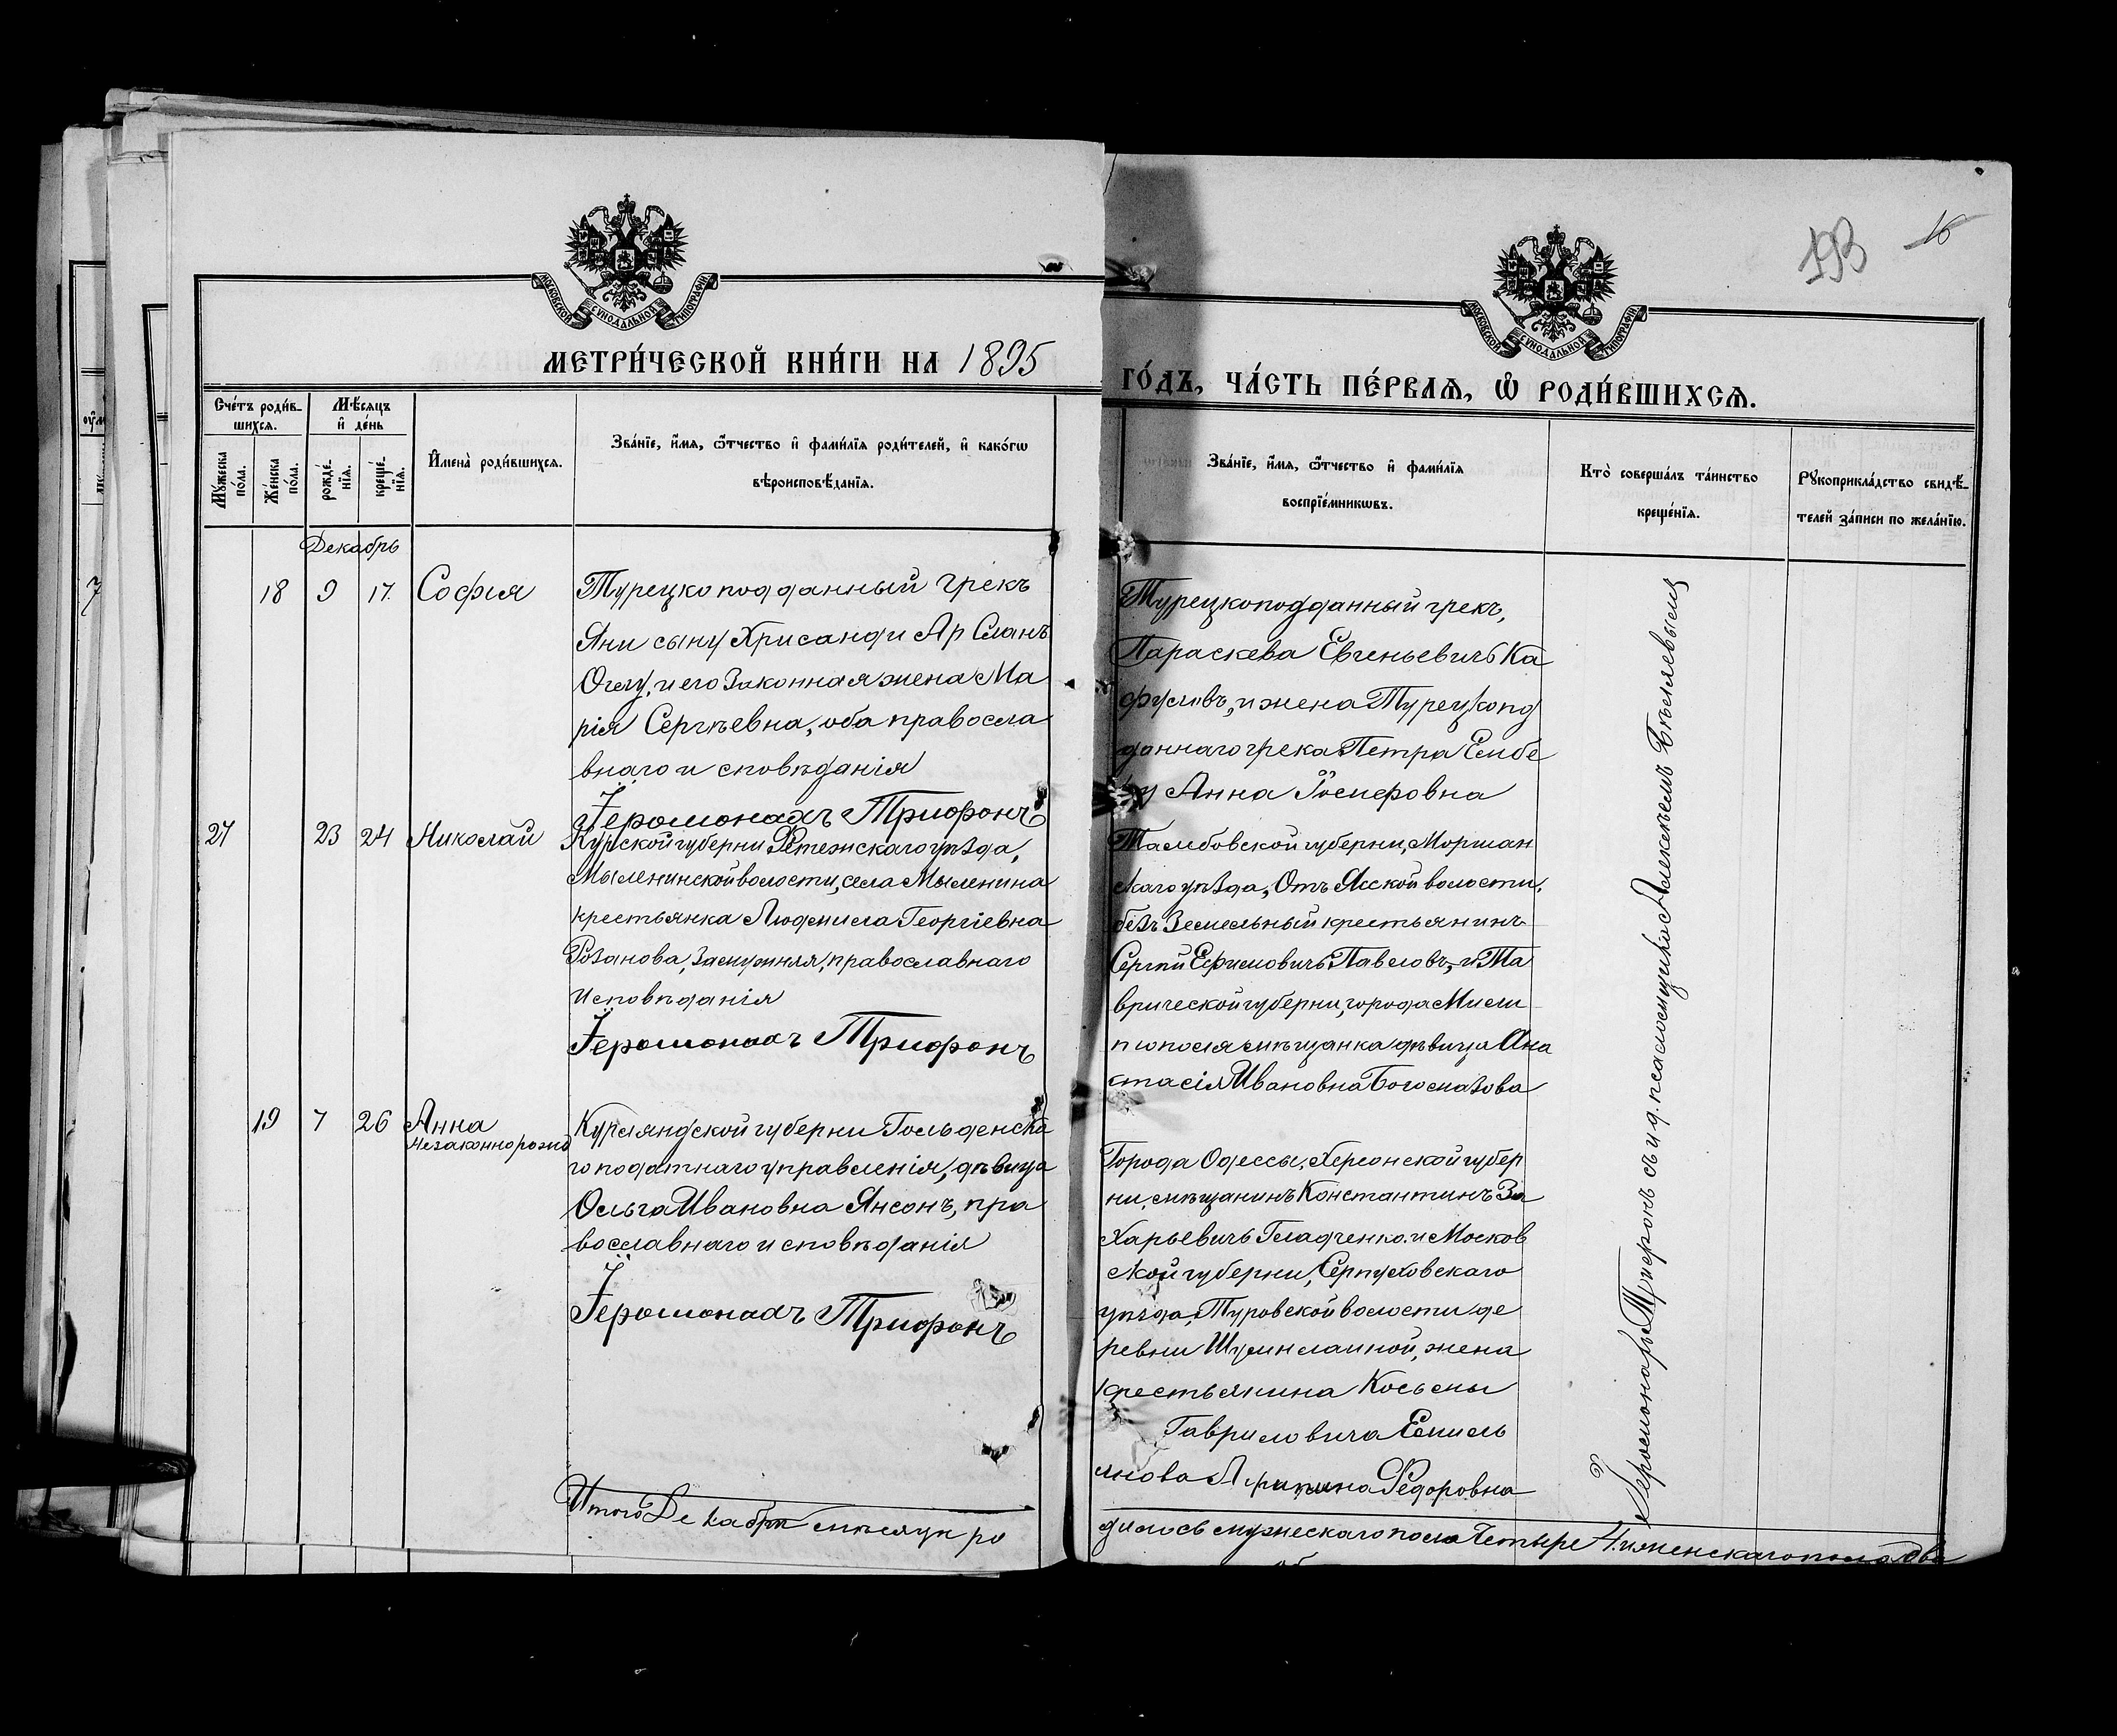 193 16
МОСКОВСКОЙ СѴНОДАЛЬНОЙ ТИПОГРАФІИ
МОСКОВСКОЙ СѴНОДАЛЬНОЙ ТИПОГРАФІИ
МЕТРИ́ЧЕСКОЙ КНИ́ГИ НА 1895
ГО́ДЪ, ЧА́СТЬ ПЕ́РВАѦ, Ѽ РОДИ́ВШИХСѦ.
Сче́тъ роди́в-
шихсѧ.
Мꙋ́жеска
по́ла.
Же́нска
по́ла.
Мѣ́сѧцъ
и҆ де́нь
рожде́-
нїѧ.
креще́-
нїѧ.
И҆мена̀ роди́вшихсѧ.
Зва́нїе, и҆́мѧ, ѻ҆́тчество и҆ фами́лїѧ роди́телей, и҆ како́гѡ
вѣроисповѣ́данїѧ.
Зва́нїе, и҆́мѧ, ѻ҆́тчество и҆ фами́лїѧ
воспрїе́мникѡвъ.
Кто̀ соверша́лъ та́инство
креще́нїѧ.
Рꙋкоприкла́дство свидѣ́-
телей за́писи по жела́нїю.
Декабрь
18 9 17. София
Турецко подданный грекъ
Яни сыну Хрисанфи Ар Сланъ
Оглу, и его законная жена Ма
рія Сергѣевна, оба правосла
внаго и сповѣданія
Іеромонахъ Трифонъ
Турецкоподданный грекъ,
Параскева Евгеньевичъ Ка
и жена Турецкопод
даннаго грека Петра
Анна
27 23 24 Николай
Курской губерни Фтежскаго уѣзда,
Мыленинской волости, села Мыленина
крестьянка Людмила Георгіевна
Розанова, замужняя, православнаго
исповѣданія
Іеромонахъ Трифонъ
Тамбовской губерни, Моршан
скаго уѣзда, Отъ Ясской волости,
безъ Земельный крестьянинъ
Сергѣй Ефимовичъ Павловъ, и Та
врической губерни, города Мили
тополя мѣщанка дѣвица Ана
стасія Ивановна Богомазова
19 7 26 Анна
Незаконнорожд
Курляндской губерни Гольденска
го податнаго управленія, дѣвица
Ольга Ивановна Янсонъ, пра
вославнаго и сповѣданія
Іеромонахъ Трифонъ
Города Одессы, Херсонской губер
ни, мѣщанинъ Константинъ За
харьевичъ Гладченко. и Москов
ской губерни, Серпуховскаго
уѣзда, Туровской волости де
ревни жена
крестьянина Косьмы
Гавриловича Емель
янова Федоровна
Іеромонахъ Трифонъ съ и. д. псаломщика Алексѣемъ
Итого Декабрь мѣсяцъ ро
дилось мужескаго пола Четыре 4. и женскаго пола два
7